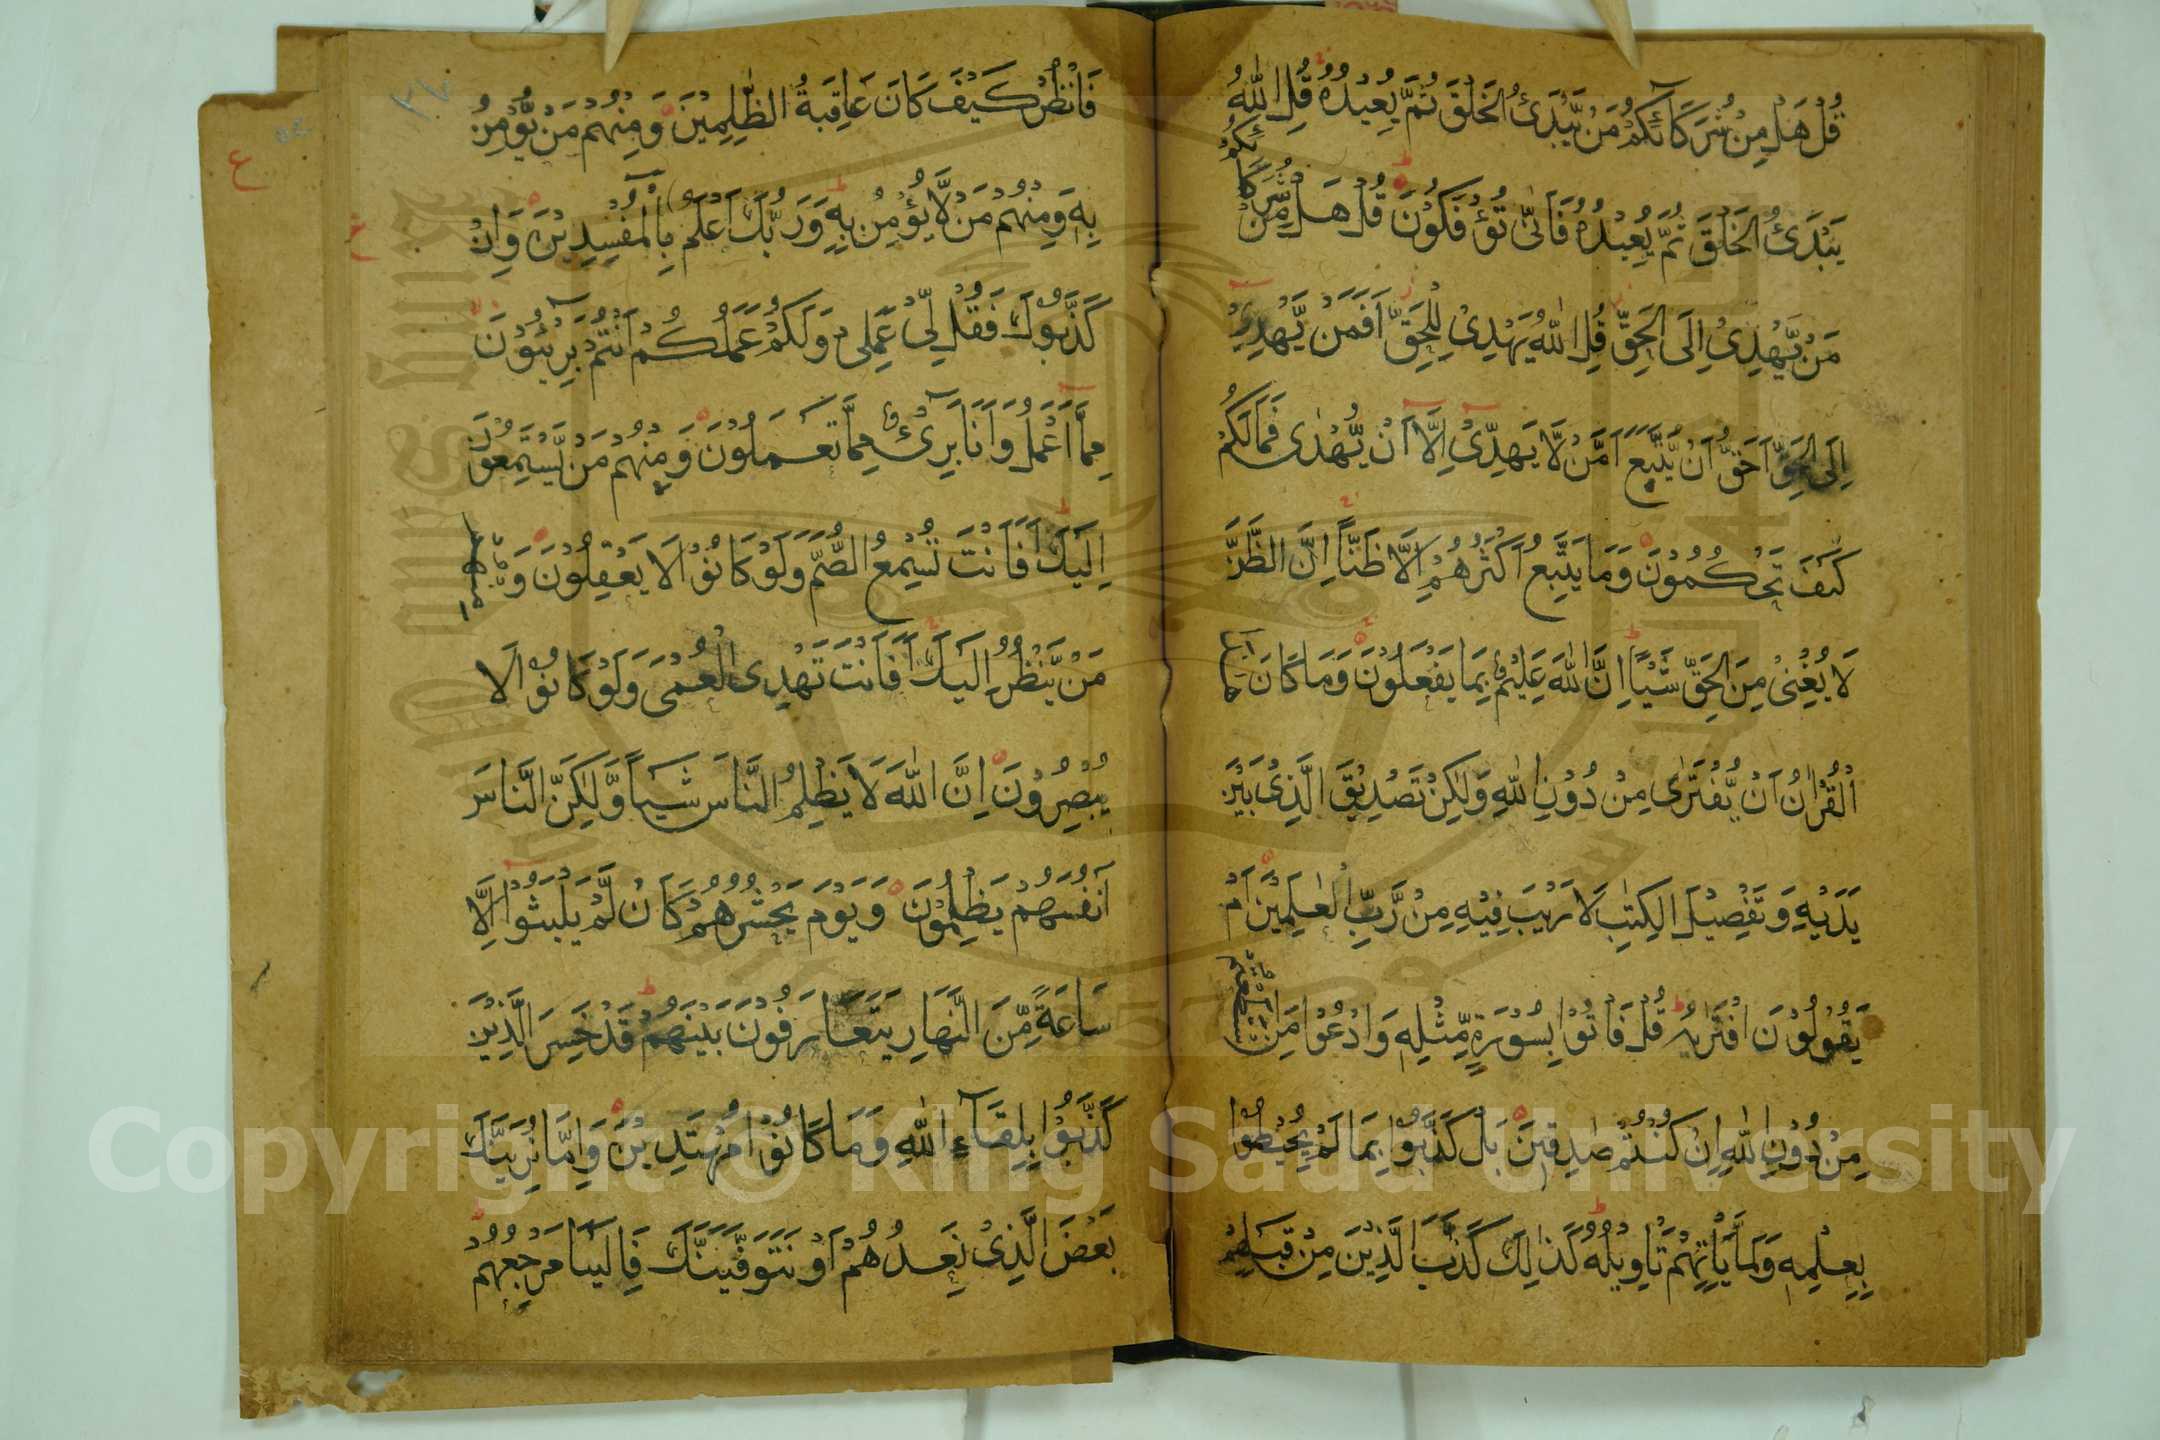 قُلْ هَلْ مِنْ شُرَكَآئِكُمْ مَنْ يَّبْدَئُ الْخَلْقَ ثُمَّ يُعِيْدُهُ قُلِ اللّٰهُ
يَبْدَئُ الْخَلْقَ ثُمَّ يُعِيْدُهُ فَاَنّٰى تُؤْفَكُوْنَ قُلْ هَلْ مِنْ شُرَكَائِكُمْ
مَنْ يَّهْدِىْ اِلَى الْحَقِّ قُلِ اللّٰهُ يَهْدِىْ لِلْحَقِّ اَفَمَنْ يَّهْدِىْ
اِلَى الْحَقِّ اَحَقُّ اَنْ يُّتَّبَعَ اَمَّنْ لَّا يَهِدِّىْ اِلَّا اَنْ يُّهْدٰى فَمَا لَكُمْ
كَيْفَ تَحْكُمُوْنَ وَمَا يَتَّبِعُ اَكْثَرُهُمْ اِلَّا ظَنًّا اِنَّ الظَّنَّ
لَا يُغْنِىْ مِنَ الْحَقِّ شَيْئًا اِنَّ اللّٰهَ عَلِيْمٌ بِمَا يَفْعَلُوْنَ وَمَا كَانَ هٰذَا
الْقُرْاٰنُ اَنْ يُّفْتَرٰى مِنْ دُوْنِ اللّٰهِ وَلٰكِنْ تَصْدِيْقَ الَّذِىْ بَيْنَ
يَدَيْهِ وَتَفْصِيْلَ الْكِتٰبِ لَا رَيْبَ فِيْهِ مِنْ رَّبِّ الْعٰلَمِيْنَ اَمْ
يَقُوْلُوْنَ افْتَرٰىهُ قُلْ فَاْتُوْا بِسُوْرَةٍ مِّثْلِهٖ وَادْعُوْا مَنِ اسْتَطَعْتُمْ
مِنْ دُوْنِ اللّٰهِ اِنْ كُنْتُمْ صٰدِقِيْنَ بَلْ كَذَّبُوْا بِمَا لَمْ يُحِيْطُوْا
بِعِلْمِهٖ وَلَمَّا يَاْتِهِمْ تَاْوِيْلُهُ كَذٰلِكَ كَذَّبَ الَّذِيْنَ مِنْ قَبْلِهِمْ
فَانْظُرْ كَيْفَ كَانَ عَاقِبَةُ الظّٰلِمِيْنَ وَمِنْهُمْ مَنْ يُّؤْمِنُ
بِهٖ وَمِنْهُمْ مَنْ لَّا يُؤْمِنُ بِهٖ وَرَبُّكَ اَعْلَمُ بِالْمُفْسِدِيْنَ وَاِنْ
كَذَّبُوْكَ فَقُلْ لِّىْ عَمَلِىْ وَلَكُمْ عَمَلُكُمْ اَنْتُمْ بَرِيْئُوْنَ
مِمَّا اَعْمَلُ وَاَنَا بَرِىْءٌ مِمَّا تَعْمَلُوْنَ وَمِنْهُمْ مَنْ يَّسْتَمِعُوْنَ
اِلَيْكَ اَفَاَنْتَ تُسْمِعُ الصُّمَّ وَلَوْ كَانُوْا لَا يَعْقِلُوْنَ وَمِنْهُمْ
مَنْ يَّنْظُرُ اِلَيْكَ اَفَاَنْتَ تَهْدِى الْعُمْىَ وَلَوْ كَانُوْا لَا
يُبْصِرُوْنَ اِنَّ اللّٰهَ لَا يَظْلِمُ النَّاسَ شَيْئًا وَّلٰكِنَّ النَّاسَ
اَنْفُسَهُمْ يَظْلِمُوْنَ وَيَوْمَ يَحْشُرُهُمْ كَاَنْ لَّمْ يَلْبَثُوْا اِلَّا
سَاعَةً مِّنَ النَّهَارِ يَتَعَارَفُوْنَ بَيْنَهُمْ قَدْ خَسِرَ الَّذِيْنَ
كَذَّبُوْا بِلِقَآءِ اللّٰهِ وَمَا كَانُوْا مُهْتَدِيْنَ وَاِمَّا نُرِيَنَّكَ
بَعْضَ الَّذِىْ نَعِدُهُمْ اَوْ نَتَوَفَّيَنَّكَ فَاِلَيْنَا مَرْجِعُهُمْ
ع
Copyright © King Saud University